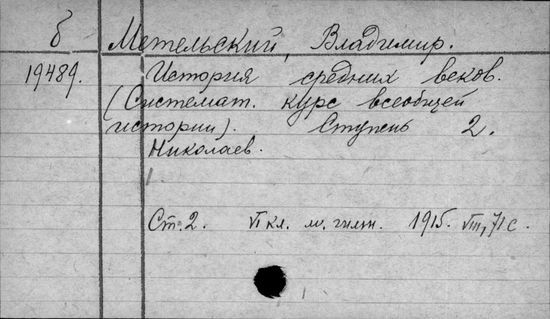 б Метельский, Владимир.
19489. История средних веков.
(Системат. курс всеобщей
истории). Ступень 2.
Николаев.
1.
Ст. 2. VI кл. м. гимн. 1915. VIII, 71 с.